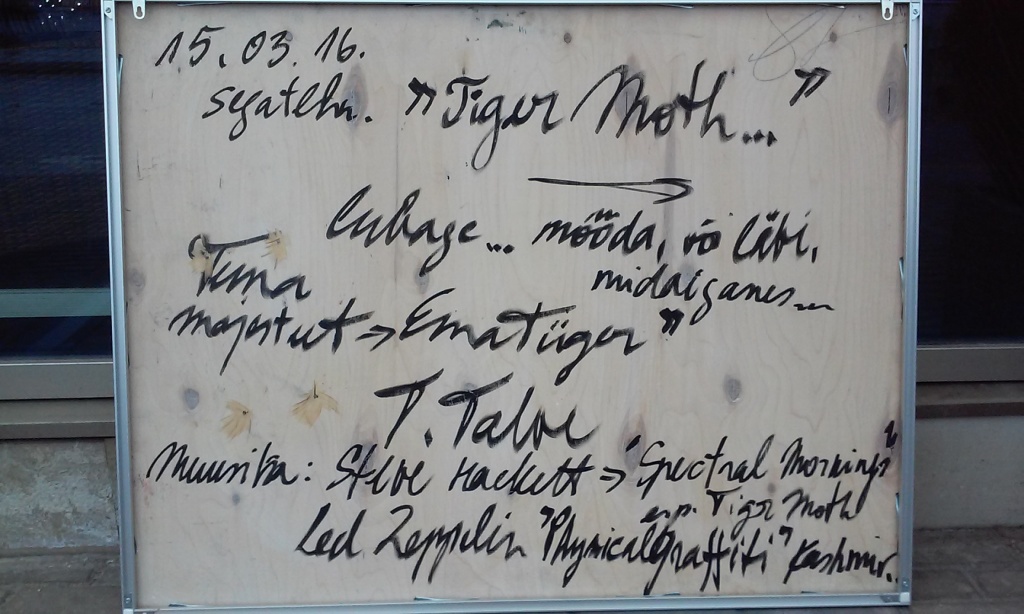 15.03.16.
segatehn. "Tiger Moth..."
lubage... mööda, või läbi,
Tema midaiganes...
majesteet → Ematiiger"
T. Talve
Muusika: Steve Hackett → "Spectral Mornings"
esp. Tiger Moth
Led Zeppelin "Physical Graffiti" Kashmir.